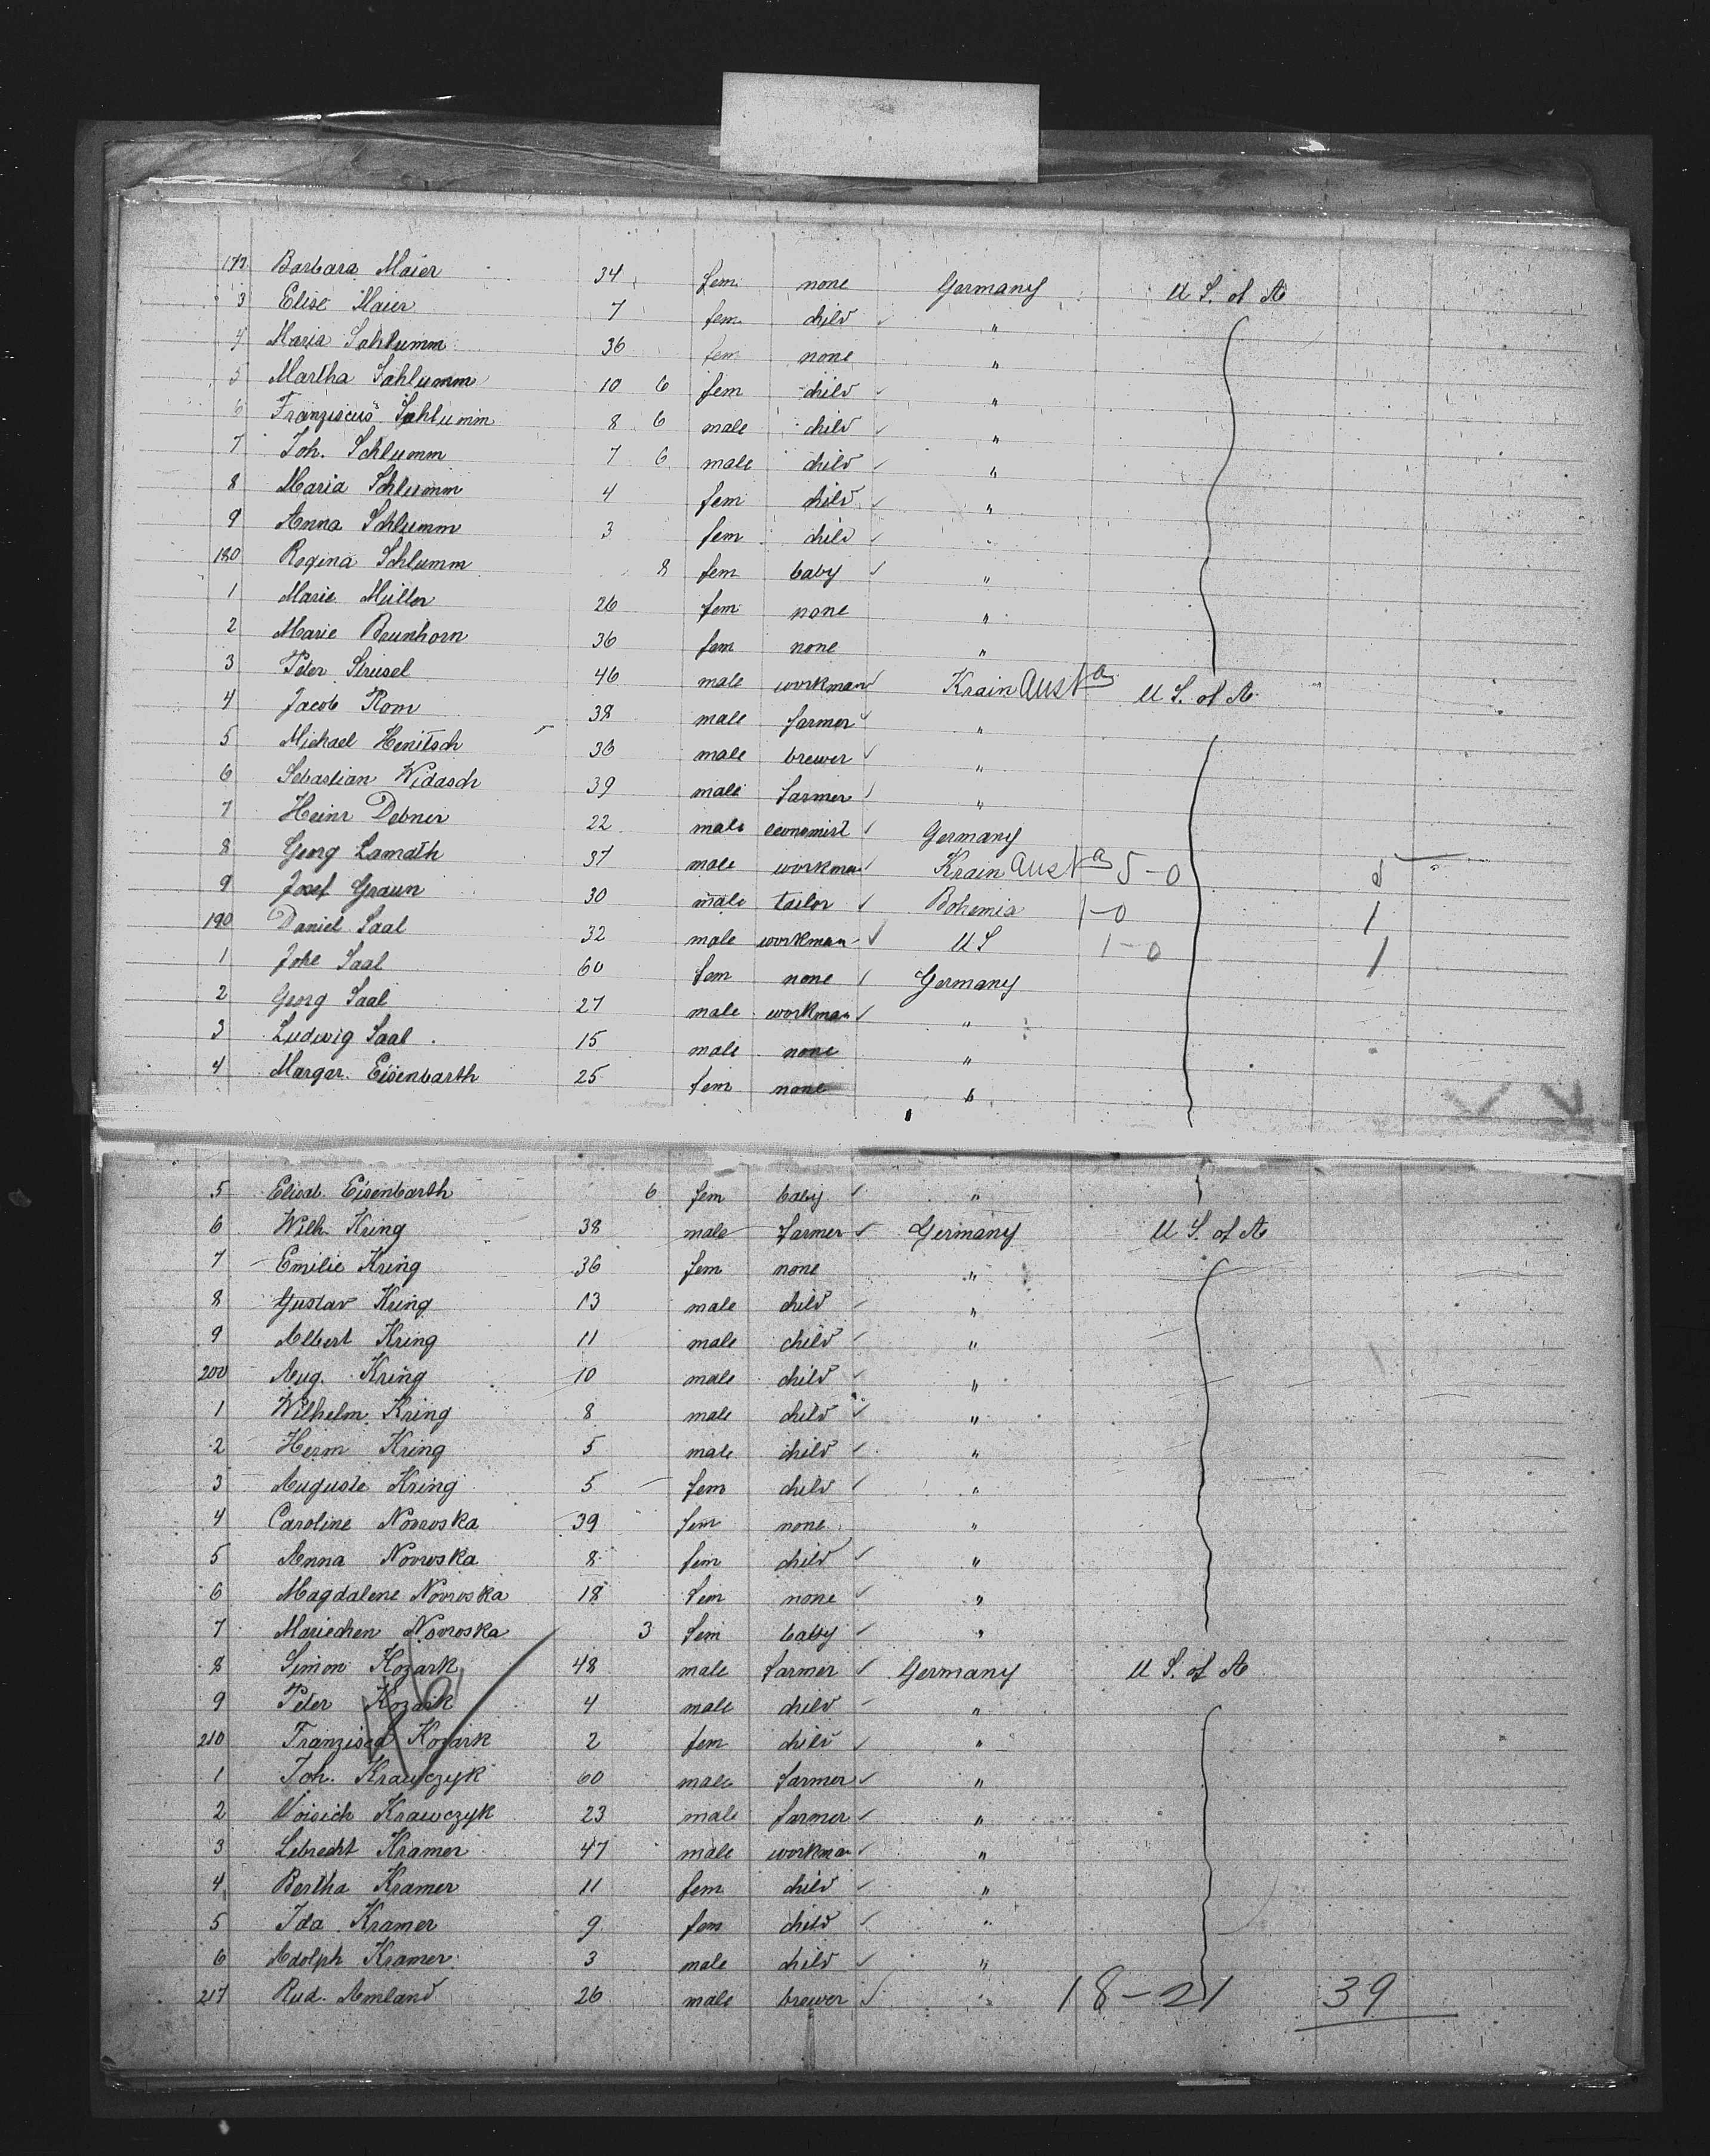 172 Barbara Maier 34 fem. none Germany U S. of A
3 Elise Maier 7 fem child "
4 Maria Schlumm 36 fem none "
5 Martha Schlumm 10 6 fem child "
6 Franziscus Schlumm 8 6 male child "
7 Joh. Schlumm 7 6 male child "
8 Maria Schlumm 4 fem child "
9 Anna Schlumm 3 fem child "
180 Regina Schlumm 8 fem baby "
1 Marie Müller 26 fem none "
2 Marie Brunhorn 36 fem none "
3 Peter Strusel 46 male workman Krain Aust a U S. of A
4 Jacob Rom 38 male farmer "
5 Michael Henitsch 36 male brewer "
6 Sebastian Widasch 39 male farmer "
7 Heinr Debner 22 male economist Germany
8 Georg Lamath 37 male workman Krain Aust a 5-0 5
9 Josef Graun 30 male tailor Bohemia 1-0 1
190 Daniel Saal 32 male workman U S 1-0 1
1 Johe Saal 60 fem none Germany
2 Georg Saal 27 male workman "
3 Ludwig Saal 15 male none "
4 Margar. Eisenbarth 25 fem none "
5 Elisab. Eisenbarth 6 fem baby "
6 Wilh. Kring 38 male farmer Germany U S. of A
7 Emilie Kring 36 fem none "
8 Gustav Kring 13 male child "
9 Albert Kring 11 male child "
200 Aug. Kring 10 male child "
1 Wilhelm Kring 8 male child "
2 Herm Kring 5 male child "
3 Auguste Kring 5 fem child "
4 Caroline Nowoska 39 fem none "
5 Anna Nowoska 8 fem child "
6 Magdalene Nowoska 18 fem none "
7 Mariechen Nowoska 3 fem baby "
8 Simon Kozark 48 male farmer Germany U S. of A
9 Peter Kozark 4 male child "
210 Franzisca Kozark 2 fem child "
1 Joh. Krawczyk 60 male farmer "
2 Woisich Krawczyk 23 male farmer "
3 Lebrecht Kramer 47 male workman "
4 Bertha Kramer 11 fem child "
5 Ida Kramer 9 fem child "
6 Adolph Kramer 3 male child "
217 Rud. Amland 26 male brewer " 18-21 39